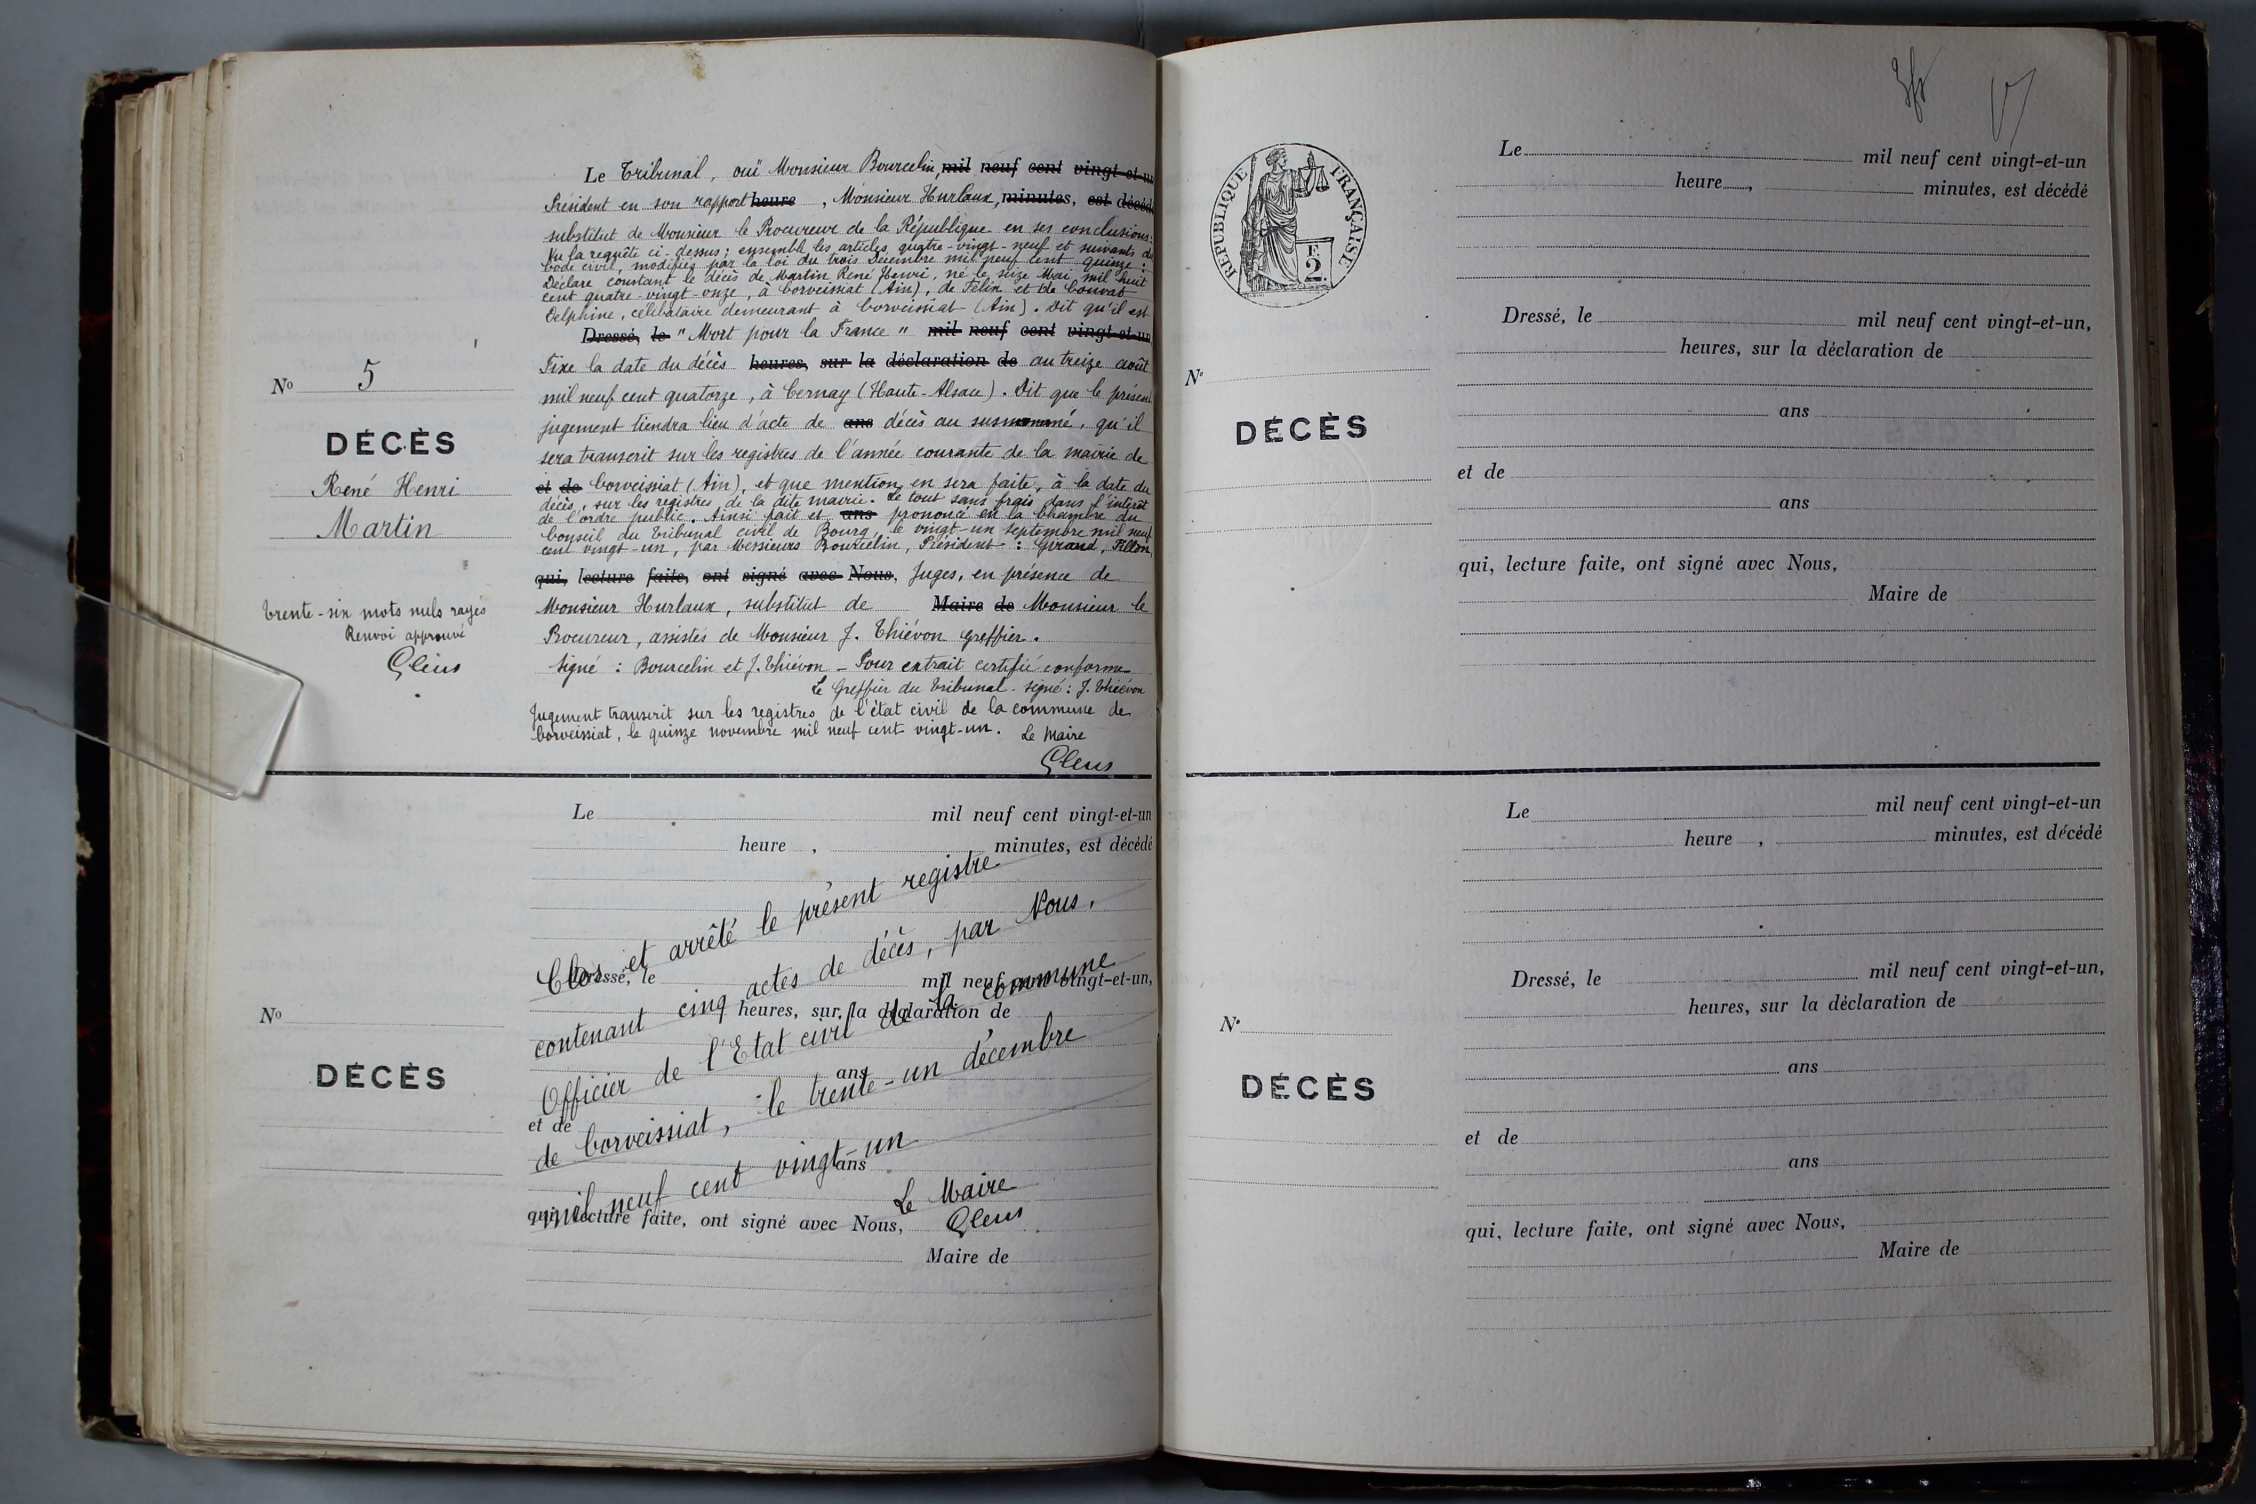 Le Tribunal, ouï Monsieur Bourcelin, mil neuf cent vingt-et-un
Président en son rapport heure , Monsieur Hurlaux, minutes, est décédé
substitut de Monsieur le Procureur de la République en ses conclusions:
Vu la requête ci-dessus; ensemble les articles quatre-vingt-neuf et suivants du
Code civil, modifiés par la loi du trois Décembre mil neuf cent quinze:
Déclare constant le décès de Martin René Henri, né le seize Mai mil huit
cent quatre-vingt-onze, à Corveissiat (Ain), de Félix et de Convat
Delphine, célibataire demeurant à Corveissiat (Ain). Dit qu'il est
Dressé, le "Mort pour la France" mil neuf cent vingt-et-un
Fixe la date du décès heures, sur la déclaration de au treize août
mil neuf cent quatorze, à Cernay (Haute-Alsace). Dit que le présent
jugement tiendra lieu d'acte de ans décès au susnommé, qu'il
sera transcrit sur les registres de l'année courante de la mairie de
et de Corveissiat (Ain), et que mention en sera faite, à la date du
décès, sur les registres de la dite mairie. Le tout sans frais dans l'intérêt
de l'ordre public. Ainsi fait et ans prononcé en la Chambre du
Conseil du Tribunal civil de Bourg, le vingt-un septembre mil neuf
cent vingt-un, par Messieurs Bourcelin, Président: Giraud, Fillon,
qui, lecture faite, ont signé avec Nous, Juges, en présence de
Monsieur Hurlaux, substitut de Maire de Monsieur le
Procureur, assistés de Monsieur J. Thiévon greffier.
Signé : Bourcelin et J. Thiévon - Pour extrait certifié conforme
Le Greffier du Tribunal - signé : J. Thiévon
Jugement transcrit sur les registres de l'état civil de la commune de
Corveissiat, le quinze novembre mil neuf cent vingt-un. Le Maire
No 5
DÉCÈS
René Henri
Martin
Trente-six mots nuls rayés
Renvoi approuvé
Le mil neuf cent vingt-et-un
heure , minutes, est décédé
Clos et arrêté le présent registre
contenant cinq actes de décès, par Nous,
Officier de l'Etat civil de la commune
de Corveissiat, le trente-un décembre
mil neuf cent vingt-un
Le Maire
Dressé, le mil neuf cent vingt-et-un,
heures, sur la déclaration de
No
DÉCÈS
ans
et de
ans
qui, lecture faite, ont signé avec Nous,
Maire de
RÉPUBLIQUE FRANÇAISE
F.
2.
Le mil neuf cent vingt-et-un
heure , minutes, est décédé
Dressé, le mil neuf cent vingt-et-un,
heures, sur la déclaration de
No
DÉCÈS
ans
et de
ans
qui, lecture faite, ont signé avec Nous,
Maire de
Le mil neuf cent vingt-et-un
heure , minutes, est décédé
Dressé, le mil neuf cent vingt-et-un,
heures, sur la déclaration de
No
DÉCÈS
ans
et de
ans
qui, lecture faite, ont signé avec Nous,
Maire de